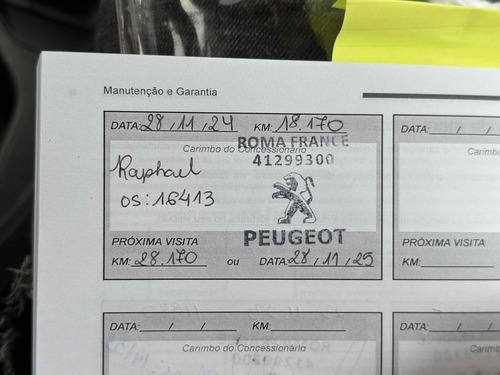 Manutenção e Garantia
DATA: 28 / 11 / 24 KM: 18.170
Carimbo do Concessionário
ROMA FRANCE
41299300
Raphael
OS: 16413
PEUGEOT
PRÓXIMA VISITA
KM: 28.170 ou DATA: 28 / 11 / 25
DATA: / /
Carimbo
PRÓXIMA VISITA
KM:
DATA: / / KM:
Carimbo do Concessionário
DATA: / /
Carimb